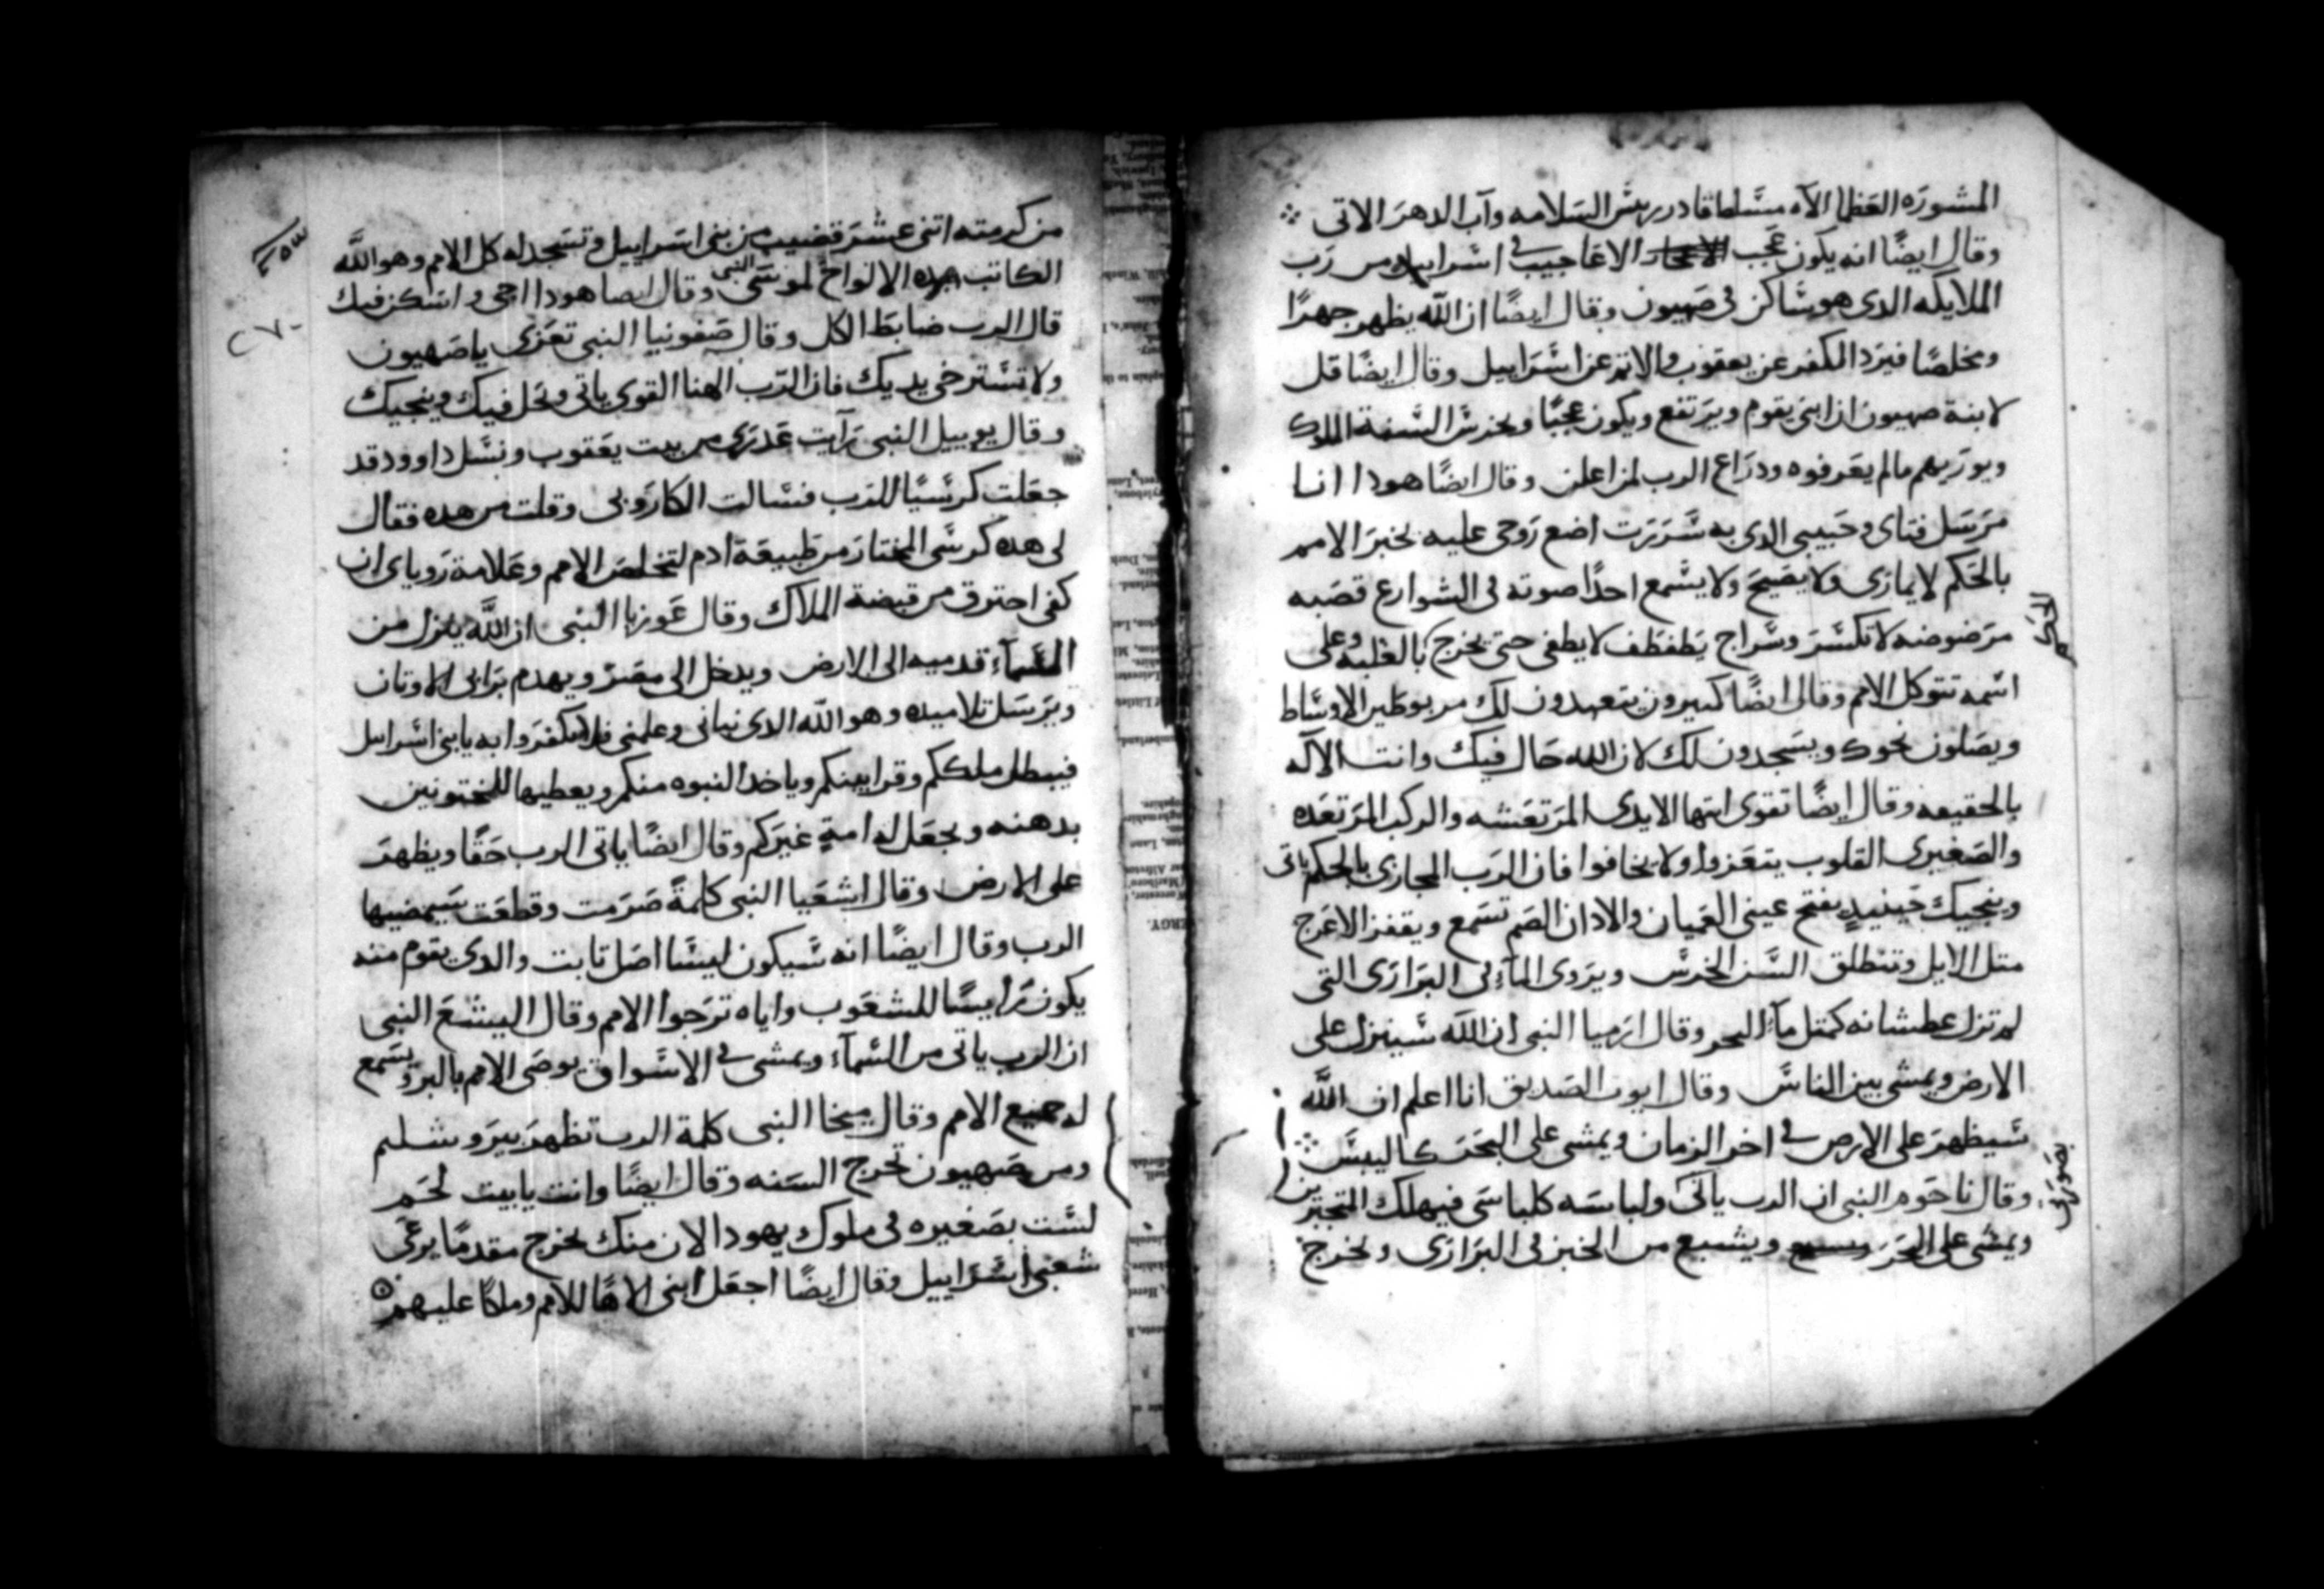 المشوره العظما الاه مسلطا قادر ريس السلامه وآب الدهر الاتى
وقال ايضًا انه يكون عجب الاعاجيب فى اسراييل من رب
الملايكه الدى هو ساكن فى صهيون وقال ايضًا ان اللّه يظهر جهرًا
ومخلصًا فيرد الكفر عن يعقوب والاتم عن اسراييل وقال ايضًا قل
لابنة صهيون ان ابنى يقوم ويرتفع ويكون عجبًا ويخرس السنة الملوك
ويوريهم مالم يعرفوه ودراع الرب لمن اعلن وقال ايضًا هودا انا
مرسل فتاى وحبيبى الدى به سررت اضع روحى عليه يخبر الامم
بالحكم لا يمارى ولا يصيح ولا يسمع احدًا صوته فى الشوارع قصبه
مرضوضه لا تكسر وسراج يطفطف لا يطفى حتى يخرج بالغلبه وعلى
الحكم
اسمه تتوكل الامم وقال ايضًا كتيرون يتعبدون لك مربوطين الاوساط
ويصلون نحوك ويسجدون لك لان اللّه حال فيك وانت الآله
بالحقيقه وقال ايضًا تقوى ايتها الايدى المرتعشه والركب المرتعده
والصغيرى القلوب يتعزوا ولا يخافوا فان الرب المجازى بالحكم ياتى
وينجيك حينيدٍ يفتح عينى العميان والادان الصم تسمع ويقفز الاعرج
متل الايل وتنطلق السن الخرس ويروى المآء فى البرارى التى
لم تزل عطشانه كمتل مآء البحر وقال ارميا النبى ان اللّه سينزل على
الارض ويمشى بين الناس وقال ايوب الصديق انا اعلم ان اللّه
سيظهر على الارض فى اخر الزمان ويمشى على البحر كاليبس
وقال ناحوم النبى ان الرب ياتى ولباسه كلباسى فيهلك المتجبرين
بصورتى
ويمشى على البحر ويشبع من الخبز فى البرارى ويخرج
من كرمته اتنى عشر قضيب من بنى اسراييل وتسجد له كل الامم وهو اللّه
الكاتب هده الالواح لموسى النبى وقال ايضا هودا اجى واسكن فيك
قال الرب ضابط الكل وقال صفونيا النبى تعزى يا صهيون
ولا تسترخى يديك فان الرب الهنا القوى ياتى ويحل فيك وينجيك
وقال يوييل النبى رآيت عدرى من بيت يعقوب ونسل داوود قد
جعلت كرسيًا للرب فسالت الكاروبى وقلت من هده فقال
لى هده كرسى المختار من طبيعة ادم لتخلص الامم وعلامة روياى ان
كفى احترق من قبضة الملاك وقال عوزيا النبى ان اللّه ينزل من
السمآء قدميه الى الارض ويدخل الى مصر ويهدم برابى الاوتان
ويرسل تلاميده وهو اللّه الدى نبانى وعلمنى فلا تكفروا به يا بنى اسراييل
فيبطل ملككم وقرابينكم وياخد النبوه منكم ويعطيها للمختونين
بدهنه ويجعل له امةٍ غيركم وقال ايضًا ياتى الرب حقًا ويظهر
على الارض وقال اشعيا النبى كلمةً صرمت وقطعت سيمضيها
الرب وقال ايضًا انه سيكون ليسا اصل تابت والدى يقوم منه
يكون رايسًا للشعوب واياه ترجوا الامم وقال اليشع النبى
ان الرب ياتى من السمآء ويمشى فى الاسواق يوصى الامم بالبر ويسمع
له جميع الامم وقال ميخا النبى كلمة الرب تظهر بيروشليم
ومن صهيون تخرج السنه وقال ايضًا وانت يا بيت لحم
لست بصغيره فى ملوك يهودا لان منك يخرج مقدمًا يرعى
شعبى اسراييل وقال ايضًا اجعل ابنى الاهًا للامم وملكًا عليهم